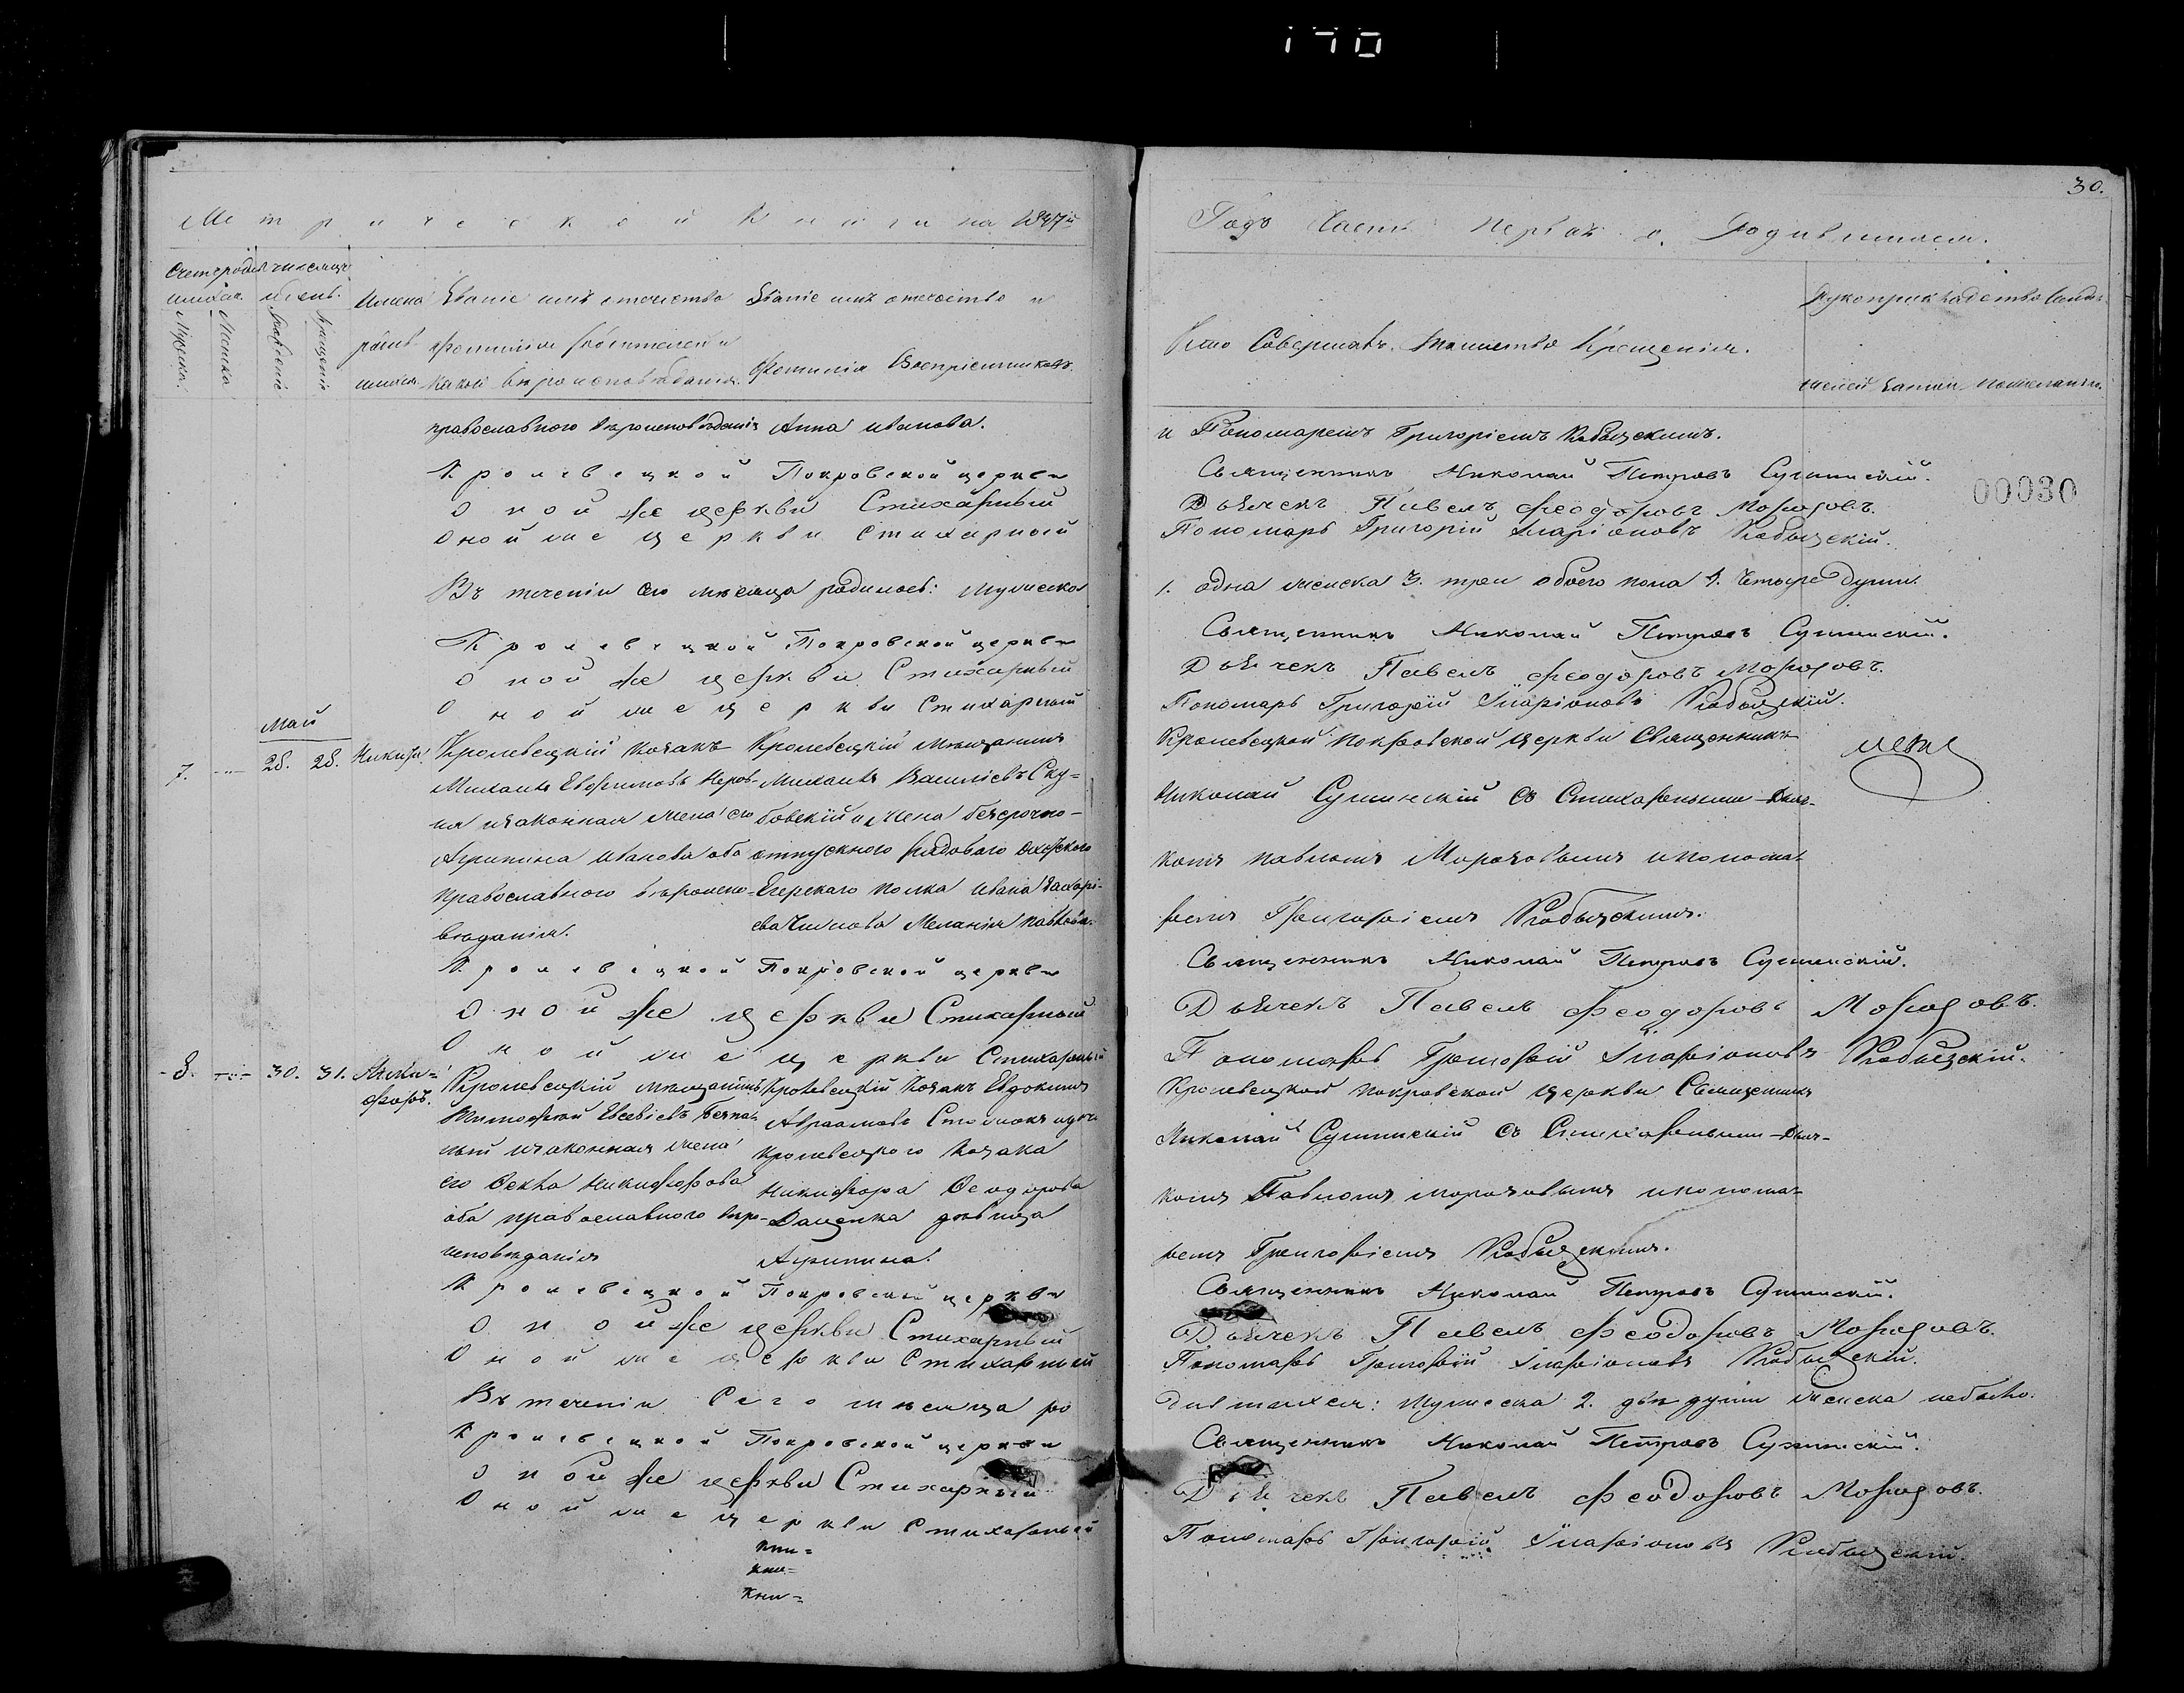 170
30.
Метрической Книги на 1847й
Годъ Часть первая о Родившихся.
Счетъ родив
шихся.
Мужеска.
Женска
числ
Рожденіе
Крещенія
Имена
родив
шихся
Званіе имя отчество
Фамилія родителей и
какой вѣроисповѣданія.
Званіе имя отчество и
Фамилія Воспріемниковъ.
Кто Совершалъ Таинство Крещенія.
Рукоприкладство Свидѣ
телей Записи по желанію.
православнаго вѣроисповѣданія
Анна Иванова.
и Пономаремъ Григоріемъ
Кролевецкой Покровской церкви
Священникъ Николай Петровъ
Оной же церкви Стихарный
Дьячекъ Павелъ Феодоровъ Морозовъ.
Оной же церкви Стихарный
Пономарь Григорій Иларіоновъ
00030
Въ теченіи сего мѣсяца родилось: мужеска
1. одна женска 3. три обоего пола 4. четыре души.
Кролевецкой Покровской церкви
Священникъ Николай Петровъ
Оной же церкви Стихарный
Дьячекъ Павелъ Феодоровъ Морозовъ.
Оной же церкви Стихарный
Пономарь Григорій Иларіоновъ
Май
7. — 28. 28. Никита
Кролевецкій козакъ
Михаилъ Евфимовъ
и законная жена его
Агрипина Иванова оба
православнаго вѣроиспо-
вѣданія.
Кролевецкій мѣщанинъ
Михаилъ Василіевъ Ску-
бовскій и жена безсрочно-
отпускного рядоваго
Егерскаго полка Ивана Захарі-
ева Меланія Павлова.
Кролевецкой Покровской церкви Священникъ
Николай съ Стихарными Дьяч-
комъ Павломъ Морозовымъ и понома-
ремъ Григоріемъ
Кролевецкой Покровской церкви
Священникъ Николай Петровъ
Оной же церкви Стихарный
Дьячекъ Павелъ Феодоровъ Морозовъ.
Оной же церкви Стихарный
Пономарь Григорій Иларіоновъ
8. — 30. 31. Ники-
форъ.
Кролевецкій мѣщанинъ
Тимофей Евсевіевъ
и законная жена
его Фекла Никифорова
оба православнаго вѣро-
исповѣданія
Кролевецкій Козакъ Евдокимъ
Авраамовъ и дочь
кролевецкого козака
Никифора Феодорова
Даценка дѣвица
Агрипина.
Кролевецкой Покровской церкви Священникъ
Николай съ Стихарными Дьяч-
комъ Павломъ Морозовымъ и понома-
ремъ Григоріемъ
Кролевецкой Покровской церкви
Священникъ Николай Петровъ
Оной же церкви Стихарный
Дьячекъ Павелъ Феодоровъ Морозовъ.
Оной же церкви Стихарный
Пономарь Григорій Иларіоновъ
Въ теченіи Сего мѣсяца ро
дившихся: мужеска 2. двѣ души женска небыло.
Кролевецкой Покровской церкви
Священникъ Николай Петровъ
Оной же церкви Стихарный
Дьячекъ Павелъ Феодоровъ Морозовъ.
Оной же церкви Стихарный
Пономарь Григорій Иларіоновъ
Кни=
Кни=
Кни=